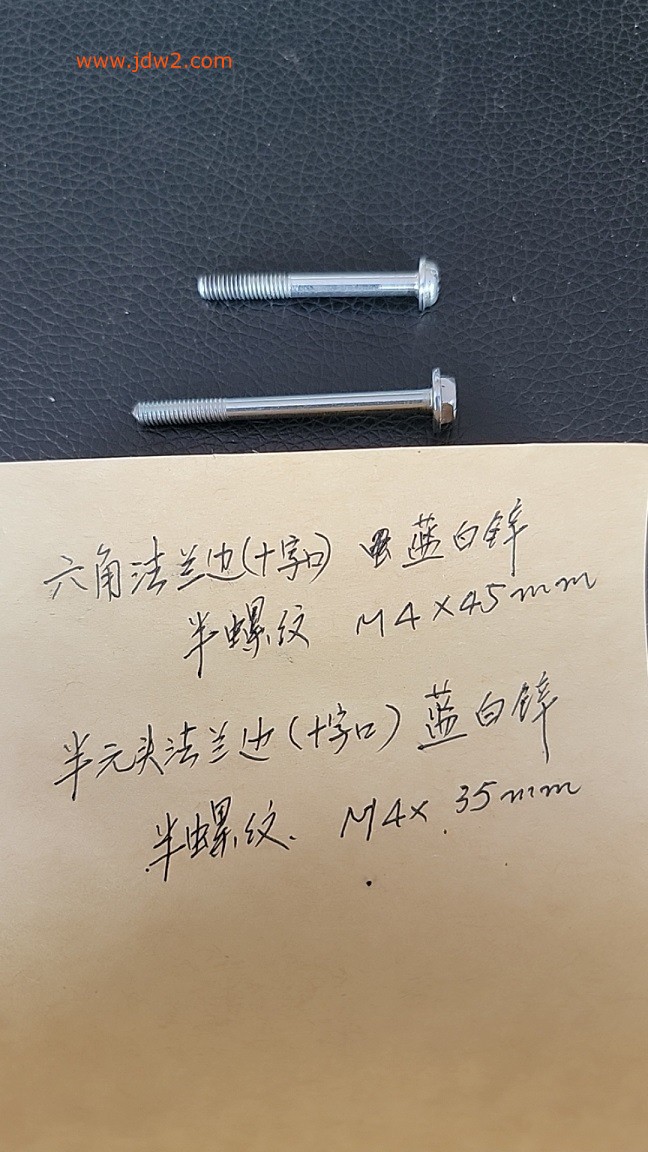 www.jdw2.com
六角法兰边(十字口) 蓝白锌
半螺纹 M4×45mm
半元头法兰边(十字口) 蓝白锌
半螺纹. M4×35mm